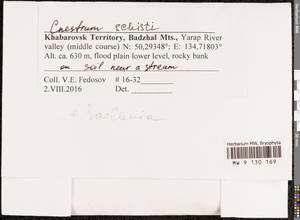 Cnestrum schisti
Khabarovsk Territory, Badzhal Mts., Yarap River
valley (middle course) N: 50,29348°; E: 134,71803°
Alt. ca. 630 m, flood plain lower level, rocky bank
on soil near a stream
Coll. V.E. Fedosov # 16-32
2.VIII.2016 Det.
Herbarium MW, Bryophyta
MW 9 130 169